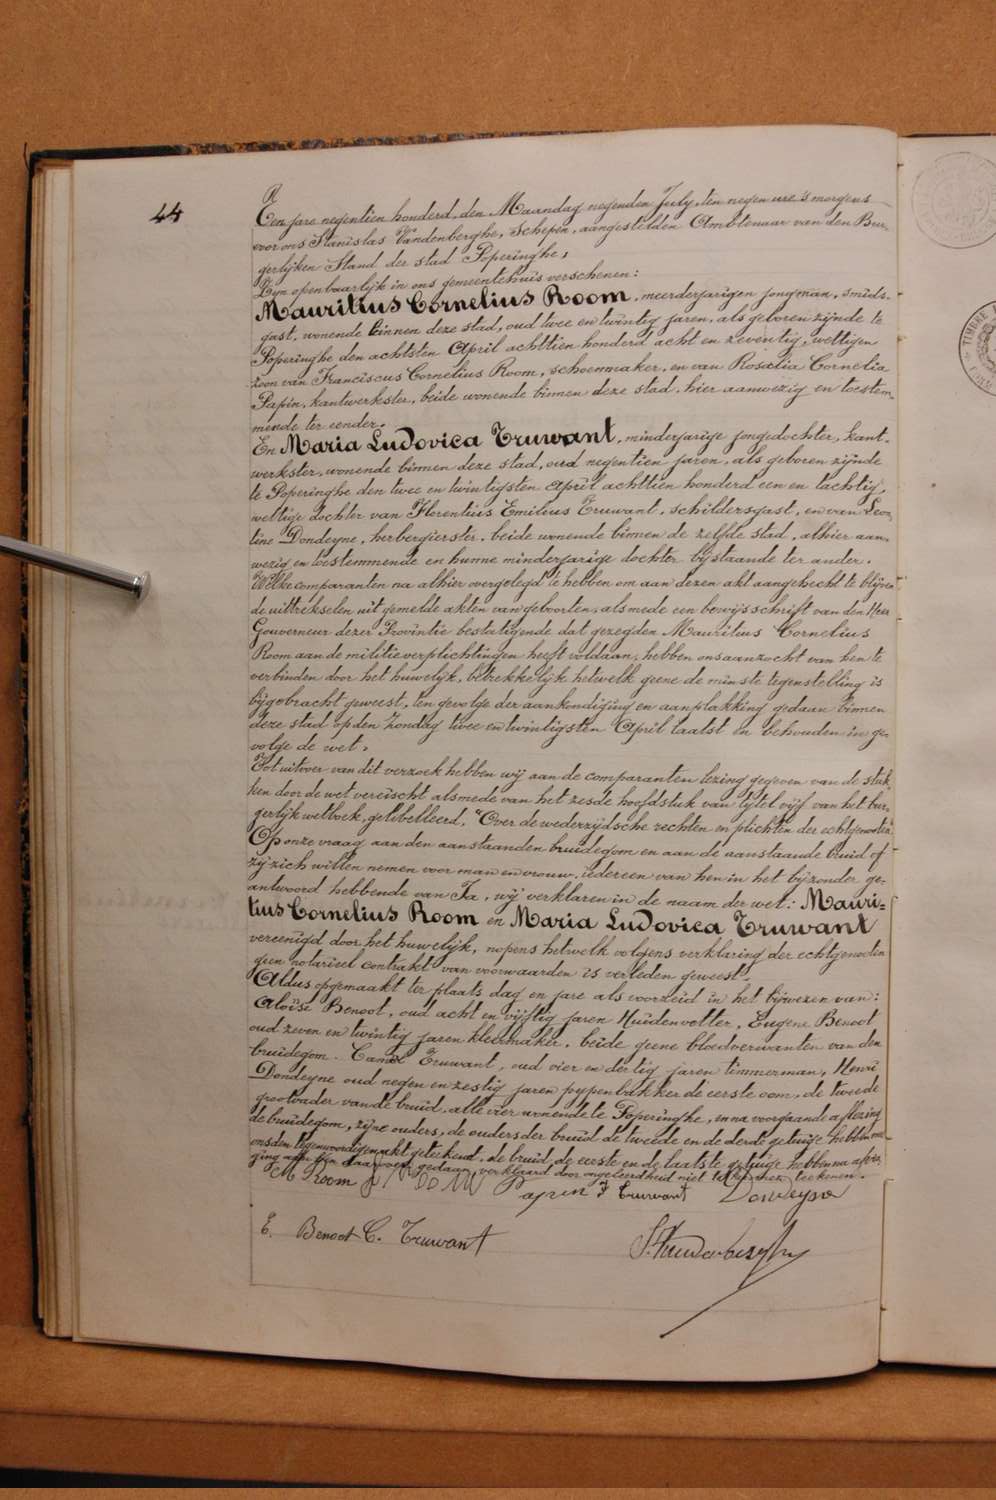 44
Ten jare negentien honderd, den Maandag negenden July, ten negen ure 's morgens
voor ons Stanislas Vandenberghe, Schepen, aangestelden Ambtenaar van den Bur-
gerlijken Stand der stad Poperinghe,
Zijn openbaarlijk in ons gemeentehuis verschenen:
Mauritius Cornelius Room, meerderjarigen jongman, smids-
gast, wonende binnen deze stad, oud twee en twintig jaren, als geboren zijnde te
Poperinghe den achtsten April achttien honderd acht en zeventig, wettigen
zoon van Franciscus Cornelius Room, schoenmaker, en van Rosalia Cornelia
Papin, kantwerkster, beide wonende binnen deze stad, hier aanwezig en toestem-
mende ter eender.
En Maria Ludovica Truwant, minderjarige jongedochter, kant-
werkster, wonende binnen deze stad, oud negentien jaren, als geboren zijnde
te Poperinghe den twee en twintigsten April achttien honderd een en tachtig,
wettige dochter van Florentius Emilius Truwant, schildersgast, en van Leon-
tine Dondeyne, herbergierster, beide wonende binnen de zelfde stad, alhier aan-
wezig en toestemmende en hunne minderjarige dochter bijstaande ter ander.
Welke comparanten na alhier overgelegd te hebben om aan dezen akt aangehecht te blijven
de uittrekselen uit gemelde akten van geboorten, alsmede een bewijsschrift van den Heer
Gouverneur dezer Provintie bestatigende dat gezegden Mauritius Cornelius
Room aan de militieverplichtingen heeft voldaan, hebben ons aanzocht van hen te
verbinden door het huwelijk, betrekkelijk hetwelk geene de minste tegenstelling is
bijgebracht geweest, ten gevolge der aankondiging en aanplakking gedaan binnen
deze stad op den Zondag twee en twintigsten April laatst en behouden in ge-
volge de wet.
Tot uitvoer van dit verzoek hebben wij aan de comparanten lezing gegeven van de stuk-
ken door de wet vereischt alsmede van het zesde hoofdstuk van tytel vijf van het bur-
gerlijk wetboek, gelibelleerd, "Over de wederzijdsche rechten en plichten der echtgenooten"
Op onze vraag aan den aanstaanden bruidegom en aan de aanstaande bruid of
zij zich willen nemen voor man en vrouw, iedereen van hen in het bijzonder ge-
antwoord hebbende van Ja, wij verklaren in de naam der wet: Mauri-
tius Cornelius Room en Maria Ludovica Truwant
vereenigd door het huwelijk, nopens hetwelk volgens verklaring der echtgenooten
geen notarieel contrakt van voorwaarden is verleden geweest.
Aldus opgemaakt ter plaats dag en jare als voorzeid in het bijwezen van:
Aloïse Benoot, oud acht en vijftig jaren Huidenvetter, Eugene Benoot
oud zeven en twintig jaren kleermaker, beide geene bloedverwanten van den
bruidegom. Camiel Truwant, oud vier en dertig jaren timmerman, Henri
Dondeyne oud negen en zestig jaren pypenbakker de eerste oom, de tweede
grootvader van de bruid, alle vier wonende te Poperinghe, en na voorgaande aflezing
de bruidegom, zijne ouders, de ouders der bruid de tweede en de derde getuige hebben met
ons den tegenwoordigen akt geteekend, de bruid, de eerste en de laatste getuige hebben na aflez-
ing aan hen daarvan gedaan, verklaard door ongeleerdheid niet te kunnen teekenen.
M Room Papin F Truwant Dondeyne
E. Benoot C. Truwant
S. Vandenberghe
TIMBRE